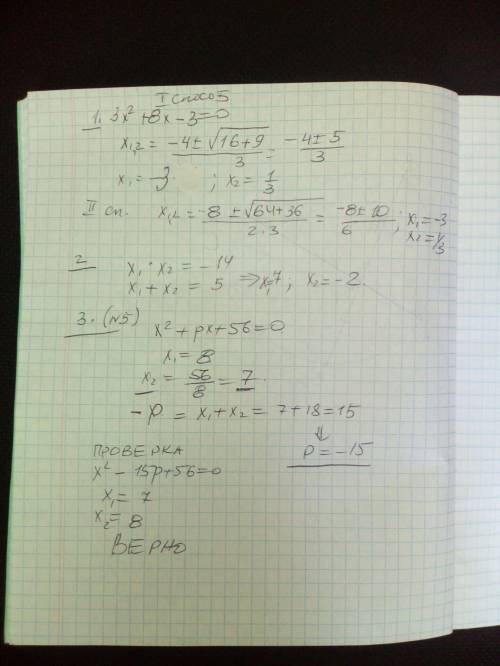 I способ
1. 3x² + 8x - 3 = 0
x₁,₂ = (-4 ± √(16+9))/3 = (-4 ± 5)/3
x₁ = -3 ; x₂ = 1/3
II сп. x₁,₂ = (-8 ± √(64+36))/(2·3) = (-8 ± 10)/6 ; x₁ = -3
x₂ = 1/3
2 x₁ · x₂ = -14
x₁ + x₂ = 5 ⇒ x₁ = 7 ; x₂ = -2.
3. (N5)
x² + px + 56 = 0
x₁ = 8
x₂ = 56/8 = 7
-p = x₁ + x₂ = 7 + 18 = 15
⇓
p = -15
ПРОВЕРКА
x² - 15p + 56 = 0
x₁ = 7
x₂ = 8
ВЕРНО